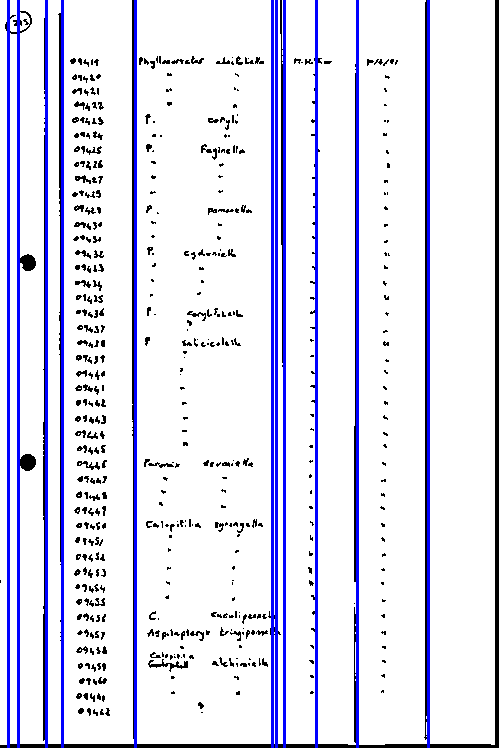 215
09419 Phyllonorycter
09420 " "
09421 " "
09422 " "
09423 P. coryli " "
09424 " " " "
09425 P. faginella " "
09426 " " " "
09427 " " " "
09428 " " " "
09429 P. pomonella " "
09430 " " " "
09431 " " " "
09432 P. cydoniella " "
09433 " " " "
09434 " " " "
09435 " " " "
09436 P. " "
09437 " "
09438 P salicicolella " "
09439 " " "
09440 " " "
09441 " " "
09442 " " "
09443 " " "
09444 " " "
09445 " " "
09446 Parornix devoniella " "
09447 " " " "
09448 " " " "
09449 " " " "
09450 Caloptilia syringella " "
09451 " " " "
09452 " " " "
09453 " " " "
09454 " " " "
09455 " " " "
09456 C. " "
09457 Aspilapteryx tringipennella " "
09458 " " " "
09459 Caloptilia alchimiella " "
09460 " " " "
09461 " " " "
09462 ?